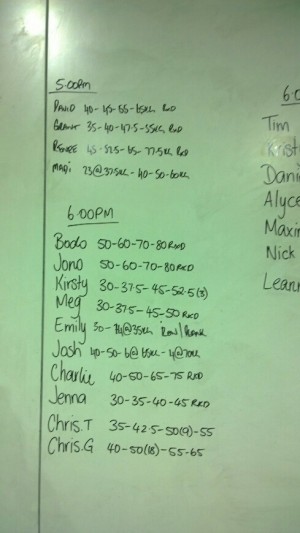 5.00pm
DAVID 40-45-55-65KG RXD
GRANT 35-40-47.5-55KG RXD
RENEE 45-52.5-65-77.5KG RXD
MADI 23@37.5KG-40-50-60KG
6.00PM
Bodo 50-60-70-80 RXD
Jono 50-60-70-80 RXD
Kirsty 30-37.5-45-52.5(3)
Meg 30-37.5-45-50 RXD
Emily 30-
Josh 40-50-6@65KG-4@70KG
Charlie 40-50-65-75 RXD
Jenna 30-35-40-45 RXD
Chris.T 35-42.5-50(9)-55
Chris.G 40-50(18)-55-65
6.0
Tim
Krist
Dani
Alyce
Maxin
Nick
Leann